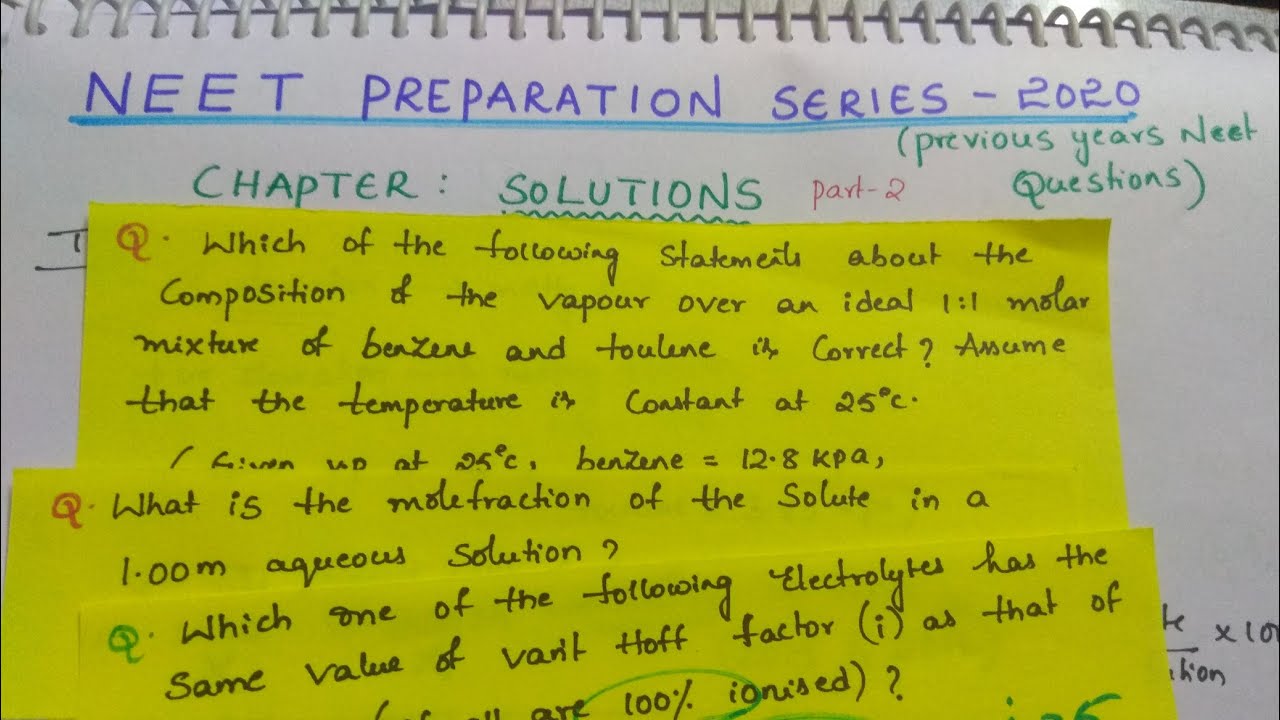 NEET PREPARATION SERIES - 2020
(previous years Neet Questions)
CHAPTER: SOLUTIONS part-2
Q. Which of the following statements about the
Composition of the vapour over an ideal 1:1 molar
mixture of benzene and toulene is Correct? Assume
that the temperature is Constant at 25°C.
(Given up at 25°C, benzene = 12.8 kpa,
Q. What is the molefraction of the Solute in a
1.00m aqueous solution?
Q. Which one of the following Electrolytes has the
Same value of van't Hoff factor (i) as that of
all are 100% ionised)?
x 10